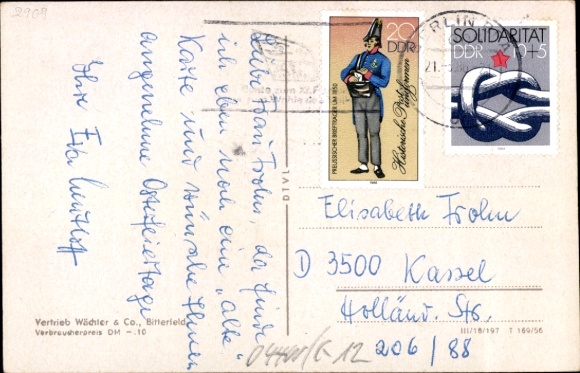 2909
Liebe Frau Frohn, da finde
ich eben noch eine „alte“
Karte und wünsche Ihnen
angenehme Osterfeiertage
Ihre
20
DDR
PREUSSISCHER BRIEFTRÄGER UM 1850
Historische Postuniformen
1986
BERLIN
21.
SOLIDARITÄT
DDR 10+5
DIVL
Elisabeth Frohn
D 3500 Kassel
Holländ. Str.
206/88
Vertrieb Wächter & Co., Bitterfeld
Verbraucherpreis DM -.10
III/18/197 T 169/56